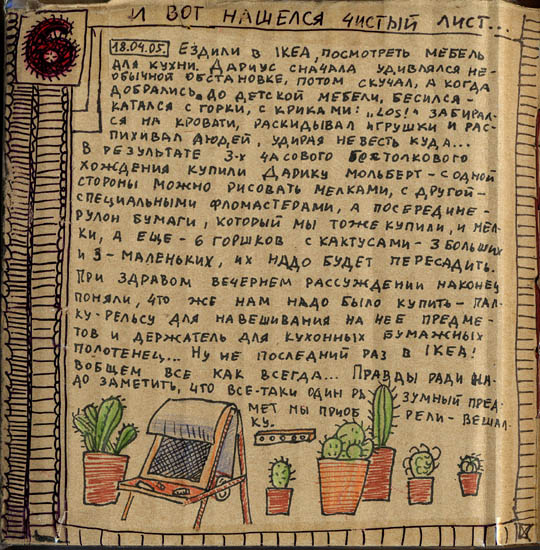 И ВОТ НАШЕЛСЯ ЧИСТЫЙ ЛИСТ...
6
18.04.05. ЕЗДИЛИ В IKEA, ПОСМОТРЕТЬ МЕБЕЛЬ
ДЛЯ КУХНИ. ДАРИУС СНАЧАЛА УДИВЛЯЛСЯ НЕ-
ОБЫЧНОЙ ОБСТАНОВКЕ, ПОТОМ СКУЧАЛ, А КОГДА
ДОБРАЛИСЬ ДО ДЕТСКОЙ МЕБЕЛИ, БЕСИЛСЯ -
КАТАЛСЯ С ГОРКИ, С КРИКАМИ: „LOS!" ЗАБИРАЛ-
СЯ НА КРОВАТИ, РАСКИДЫВАЛ ИГРУШКИ И РАС-
ПИХИВАЛ ЛЮДЕЙ, УДИРАЯ НЕВЕСТЬ КУДА...
В РЕЗУЛЬТАТЕ 3-Х ЧАСОВОГО БЕСТОЛКОВОГО
ХОЖДЕНИЯ КУПИЛИ ДАРИКУ МОЛЬБЕРТ - С ОДНОЙ
СТОРОНЫ МОЖНО РИСОВАТЬ МЕЛКАМИ, С ДРУГОЙ -
СПЕЦИАЛЬНЫМИ ФЛОМАСТЕРАМИ, А ПОСЕРЕДИНЕ -
РУЛОН БУМАГИ, КОТОРЫЙ МЫ ТОЖЕ КУПИЛИ, И МЕЛ-
КИ, А ЕЩЕ - 6 ГОРШКОВ С КАКТУСАМИ - 3 БОЛЬШИХ
И 3 - МАЛЕНЬКИХ, ИХ НАДО БУДЕТ ПЕРЕСАДИТЬ.
ПРИ ЗДРАВОМ ВЕЧЕРНЕМ РАССУЖДЕНИИ НАКОНЕЦ
ПОНЯЛИ, ЧТО ЖЕ НАМ НАДО БЫЛО КУПИТЬ - ПАЛ-
КУ-РЕЛЬСУ ДЛЯ НАВЕШИВАНИЯ НА НЕЕ ПРЕДМЕ-
ТОВ И ДЕРЖАТЕЛЬ ДЛЯ КУХОННЫХ БУМАЖНЫХ
ПОЛОТЕНЕЦ... НУ НЕ ПОСЛЕДНИЙ РАЗ В IKEA!
ВОБЩЕМ ВСЕ КАК ВСЕГДА... ПРАВДЫ РАДИ НА-
ДО ЗАМЕТИТЬ, ЧТО ВСЕ-ТАКИ ОДИН РАЗУМНЫЙ ПРЕД-
МЕТ МЫ ПРИОБРЕЛИ - ВЕШАЛ-
КУ.